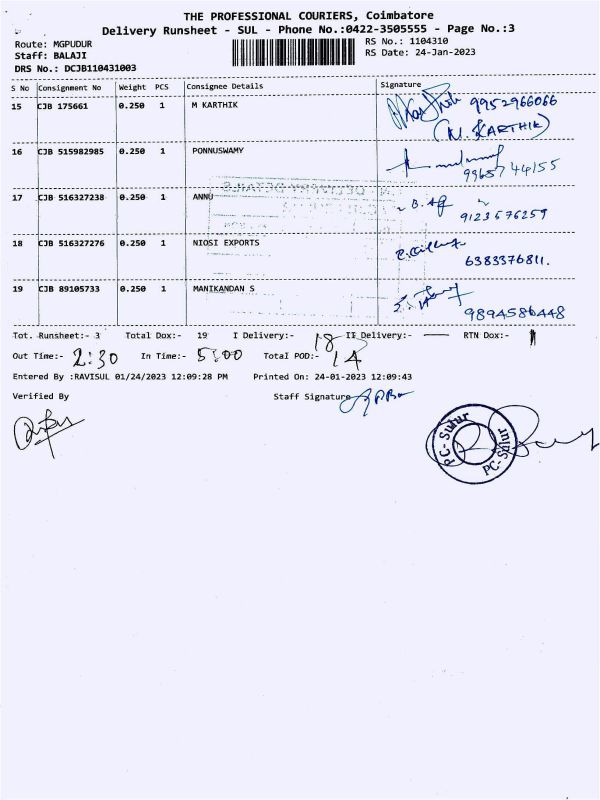 THE PROFESSIONAL COURIERS, Coimbatore
Delivery Runsheet - SUL - Phone No.:0422-3505555 - Page No.:3
Route: MGPUDUR
Staff: BALAJI
DRS No.: DCJB110431003
RS No.: 1104310
RS Date: 24-Jan-2023
S No Consignment No Weight PCS Consignee Details Signature
15 CJB 175661 0.250 1 M KARTHIK 9952966066
(M. KARTHIK)
16 CJB 515982985 0.250 1 PONNUSWAMY
9965744155
17 CJB 516327238 0.250 1 ANNU
9123676259
18 CJB 516327276 0.250 1 NIOSI EXPORTS
6383376811.
19 CJB 89105733 0.250 1 MANIKANDAN S
9894586448
Tot. Runsheet:- 3 Total Dox:- 19 I Delivery:- 18 II Delivery:- — RTN Dox:- 1
Out Time:- 2:30 In Time:- 5:00 Total POD:- 14
Entered By :RAVISUL 01/24/2023 12:09:28 PM Printed On: 24-01-2023 12:09:43
Verified By Staff Signature
PC-Sulur
PC-Sulur